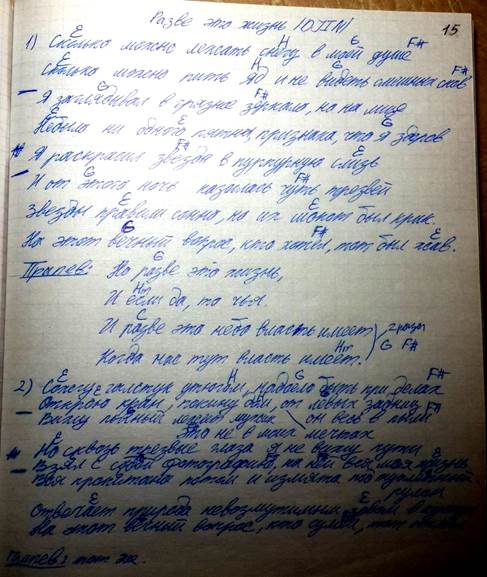 Разве это жизнь /ОПМ/ 15
E H G F#
1) Сколько можно лежать снегу в моей душе
E H G F#
Сколько можно пить яд и не видеть смешных снов
G F#
Я заглядывал в грязное зеркало, но на лице
E E G
Небыло ни одного пятна, признака, что я здоров
F#
Я раскрасил звезды в пурпурную слизь
G F#
И от этого ночь казалась чуть трезвей
E E
Звезды правили сонно, но их шёпот был крик
G F# E
На этот вечный вопрос, кто хотел, тот был жив.
G
Припев: Но разве это жизнь,
Hm
И если да, то чья
C
И разве это небо власть имеет 2 раза
Hm G F#
Когда нас тут власть имеет.
E H G F#
2) Сожгу галстук утюгом, надоело быть при делах
Открою кран, покину дом, от левых
Вижу пьяный лежит мужик он весь в пыли
Это не в моих мечтах
Но сквозь трезвые глаза я не вижу пути
Взял с собой фотографию, на ней вся моя жизнь
Вся пропитана потом и измята
рулон
Отвечает природа невозмутимым
На этот вечный вопрос, кто сумел, тот
Припев: тот же.